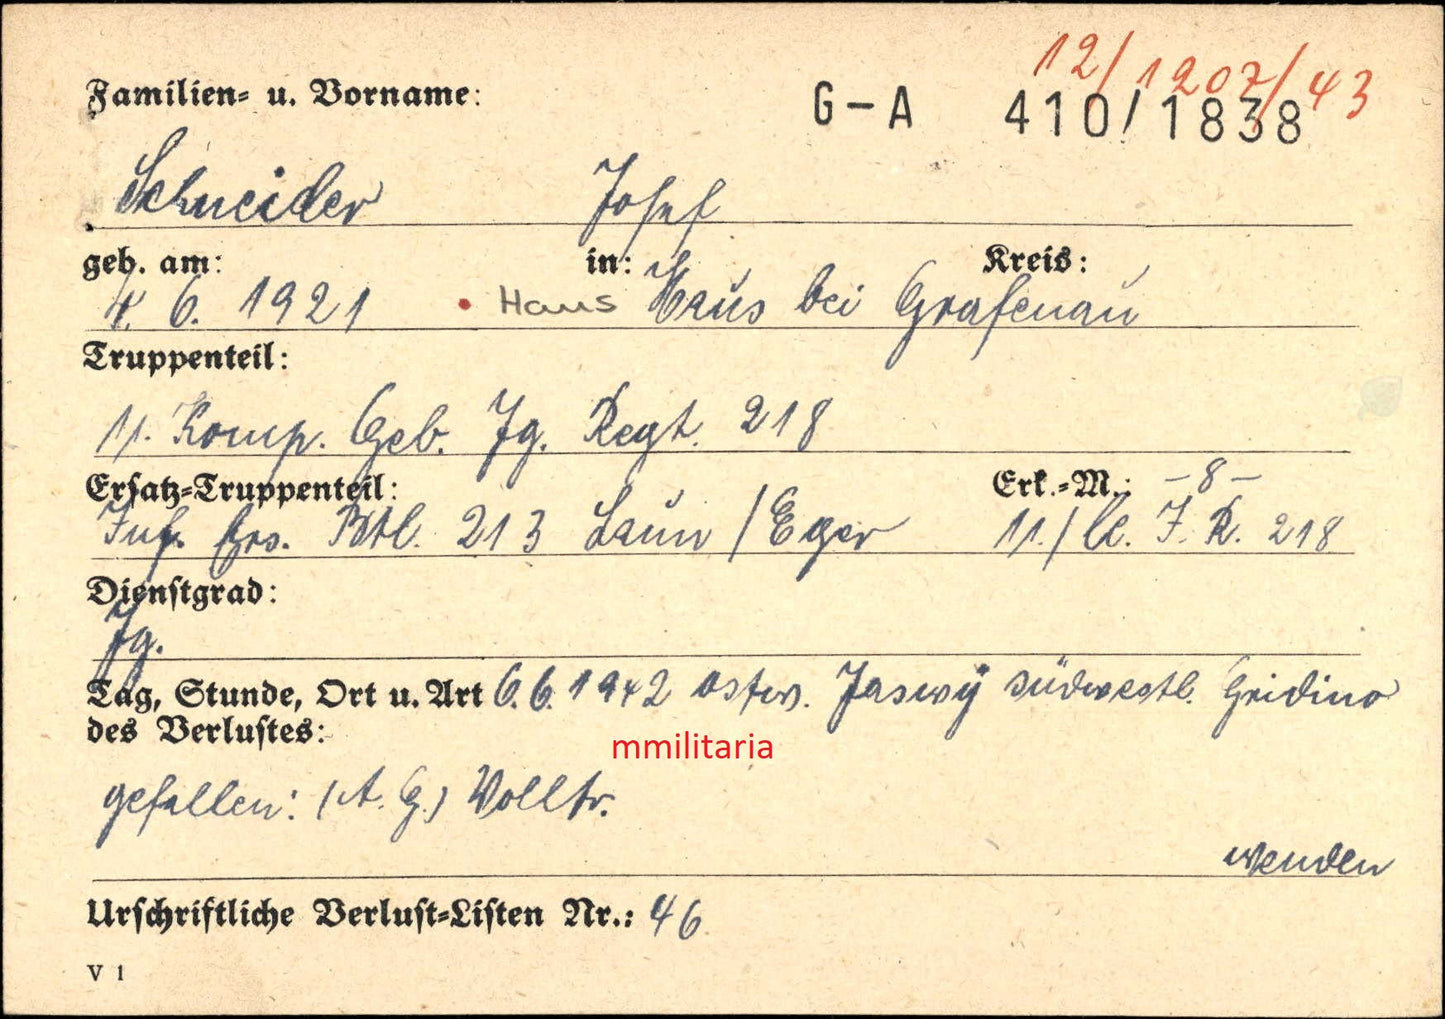 12/1207/43
Familien- u. Vorname:
G-A 410/1838
Schneider Josef
geb. am: in: Kreis:
4. 6. 1921 Haus Haus bei Grafenau
Truppenteil:
11. Komp. Geb. Jg. Regt. 218
Ersatz-Truppenteil: Erk.-M.: -8-
Inf. Ers. Btl. 213 Laun / Eger 11./ I. R. 218
Dienstgrad:
Jg.
Tag, Stunde, Ort u. Art 6.6.1942 ostw. Jaswy südwestl. Gridino
des Verlustes:
mmilitaria
gefallen: (A. G.) Volltr.
wenden
Urschriftliche Verlust-Listen Nr.: 46
V 1